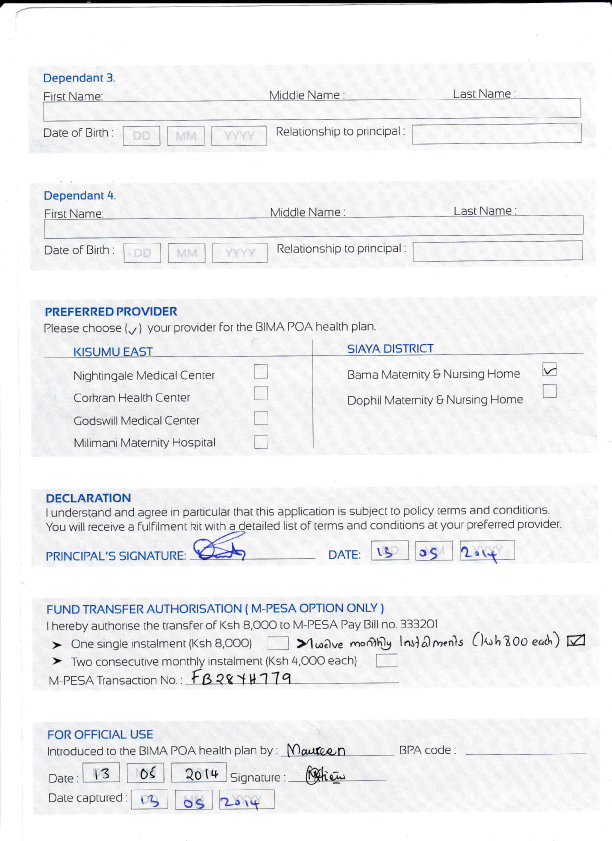 Dependant 3.
First Name: Middle Name : Last Name :
Date of Birth : DD MM YYYY Relationship to principal :
Dependant 4.
First Name: Middle Name : Last Name :
Date of Birth : DD MM YYYY Relationship to principal :
PREFERRED PROVIDER
Please choose (✓) your provider for the BIMA POA health plan.
KISUMU EAST SIAYA DISTRICT
Nightingale Medical Center Bama Maternity & Nursing Home ✓
Corkran Health Center Dophil Maternity & Nursing Home
Godswill Medical Center
Milimani Maternity Hospital
DECLARATION
I understand and agree in particular that this application is subject to policy terms and conditions.
You will receive a fulfilment kit with a detailed list of terms and conditions at your preferred provider.
PRINCIPAL'S SIGNATURE: DATE: 13 05 2014
FUND TRANSFER AUTHORISATION ( M-PESA OPTION ONLY )
I hereby authorise the transfer of Ksh 8,000 to M-PESA Pay Bill no. 333201
➤ One single instalment (Ksh 8,000) ➤ Twelve monthly Instalments (Ksh 800 each) ✓
➤ Two consecutive monthly instalment (Ksh 4,000 each)
M-PESA Transaction No. : FB28YH779
FOR OFFICIAL USE
Introduced to the BIMA POA health plan by : Maureen BPA code :
Date : 13 05 2014 Signature :
Date captured : 13 05 2014